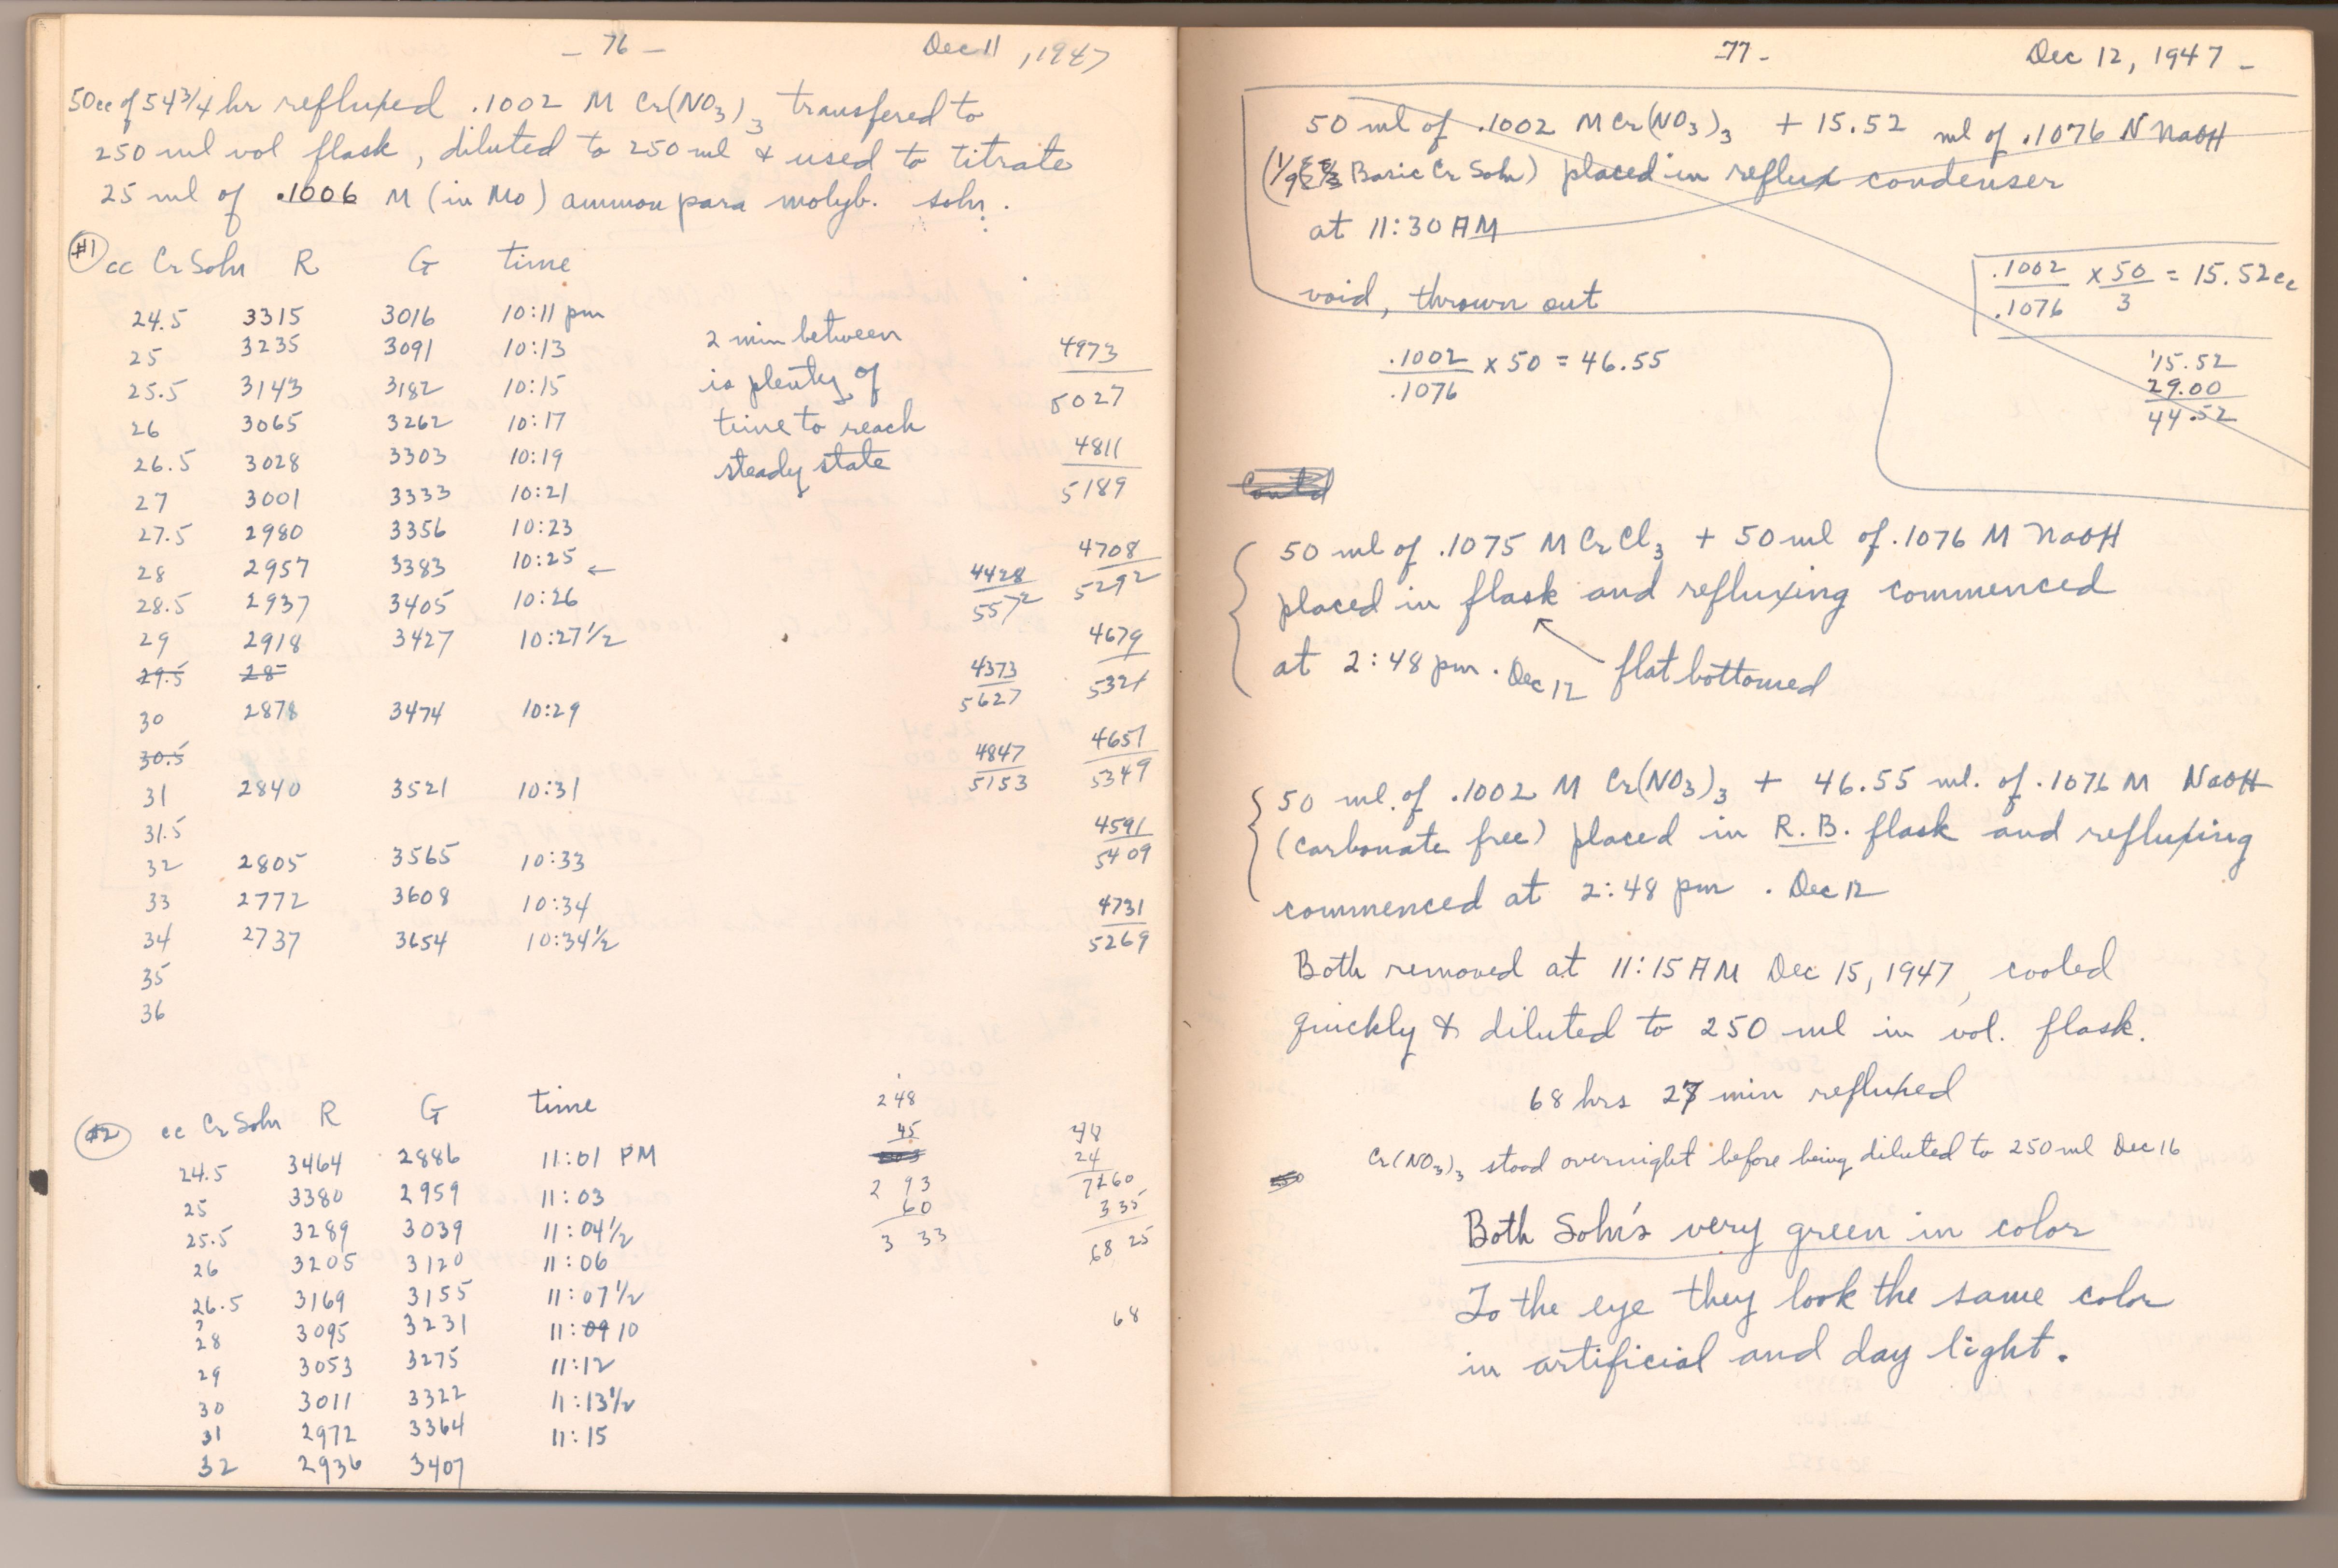 - 76 -
Dec 11, 1947
50cc of 54 3/4 hr refluxed .1002 M Cr(NO3)3 transfered to
250 ml vol flask, diluted to 250 ml & used to titrate
25 ml of .1006 M (in Mo) ammon para molyb. soln.
#1 cc Cr Soln R G time
24.5 3315 3016 10:11 pm
25 3235 3091 10:13
25.5 3143 3182 10:15
26 3065 3262 10:17
26.5 3028 3303 10:19
27 3001 3333 10:21
27.5 2980 3356 10:23
28 2957 3383 10:25 ←
28.5 2937 3405 10:26
29 2918 3427 10:27 1/2
29.5 28
30 2878 3474 10:29
30.5
31 2840 3521 10:31
31.5
32 2805 3565 10:33
33 2772 3608 10:34
34 2737 3654 10:34 1/2
35
36
2 min between
is plenty of
time to reach
steady state
4428
5572
4373
5627
4847
5153
4973
5027
4811
5189
4708
5292
4679
5321
4651
5349
4591
5409
4731
5269
#2 cc Cr Soln R G time
24.5 3464 2886 11:01 PM
25 3380 2959 11:03
25.5 3289 3039 11:04 1/2
26 3205 3120 11:06
26.5 3169 3155 11:07 1/2
28 3095 3231 11:09 10
29 3053 3275 11:12
30 3011 3322 11:13 1/2
31 2972 3364 11:15
32 2936 3407
2 48
45
2 93
60
3 33
48
24
335
68 25
68
77-
Dec 12, 1947 -
50 ml of .1002 M Cr(NO3)3 + 15.52 ml of .1076 N NaOH
Basic Cr Soln) placed in reflux condenser
at 11:30 AM
void, thrown out
.1002/.1076 x 50/3 = 15.52 cc
15.52
29.00
44.52
.1002/.1076 x 50 = 46.55
Contd
50 ml of .1075 M CrCl3 + 50 ml of .1076 M NaOH
placed in flask and refluxing commenced
at 2:48 pm. Dec 12 flat bottomed
50 ml. of .1002 M Cr(NO3)3 + 46.55 ml. of .1076 M NaOH
(carbonate free) placed in R.B. flask and refluxing
commenced at 2:48 pm. Dec 12
Both removed at 11:15 AM Dec 15, 1947, cooled
quickly & diluted to 250 ml in vol. flask.
68 hrs 27 min refluxed
Cr(NO3)3 stood overnight before being diluted to 250 ml Dec 16
Both Soln's very green in color
To the eye they look the same color
in artificial and day light.